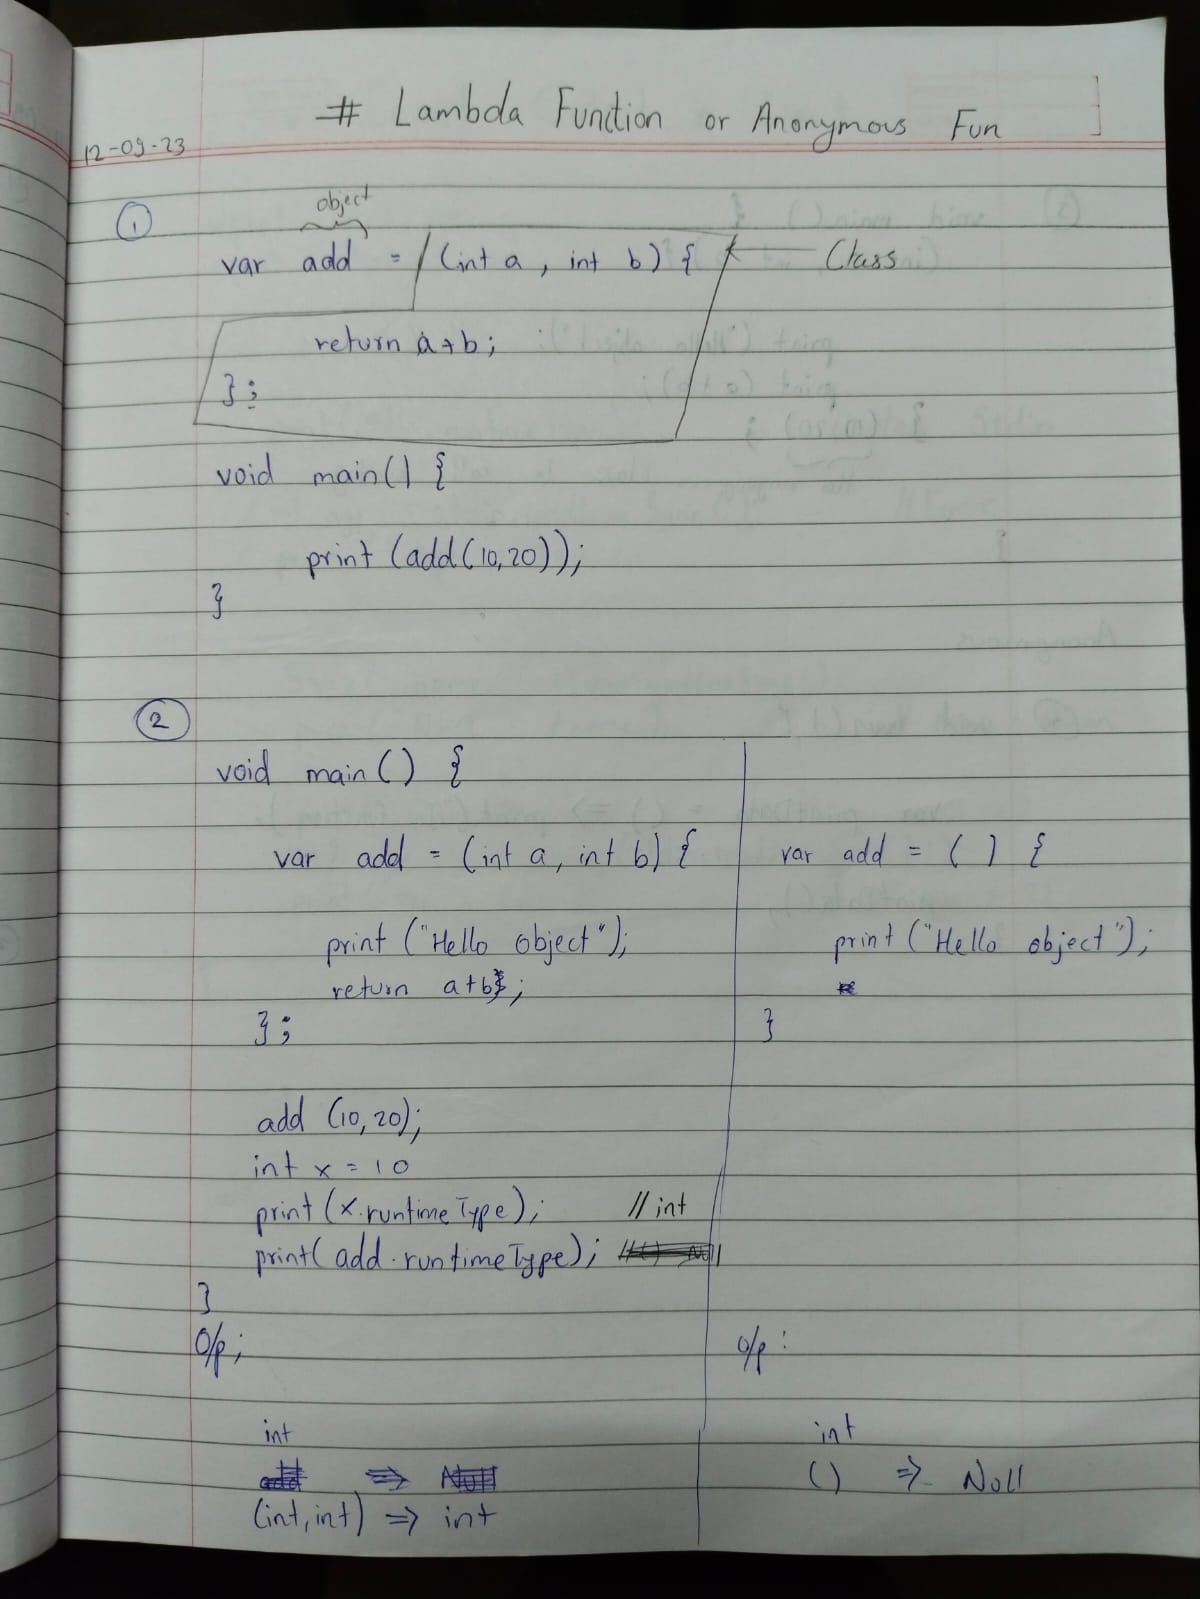 # Lambda Function or Anonymous Fun
12-09-23
①
object
var add = (int a, int b) { ← Class
return a+b;
};
void main() {
print (add(10,20));
}
②
void main() {
var add = (int a, int b) {
print ("Hello object");
return a+b;
};
add (10,20);
int x = 10
print (x.runtimeType); // int
print( add.runtimeType);
}
O/p;
int
(int, int) => int
var add = ( ) {
print ("Hello object");
}
O/p:
int
() => Null